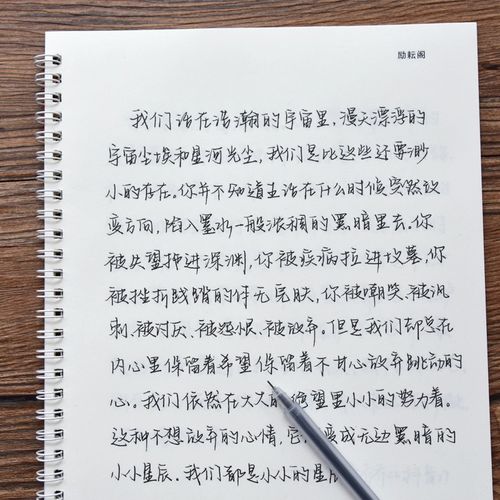 励耘阁
我们活在浩瀚的宇宙里,漫天漂浮的
宇宙尘埃和星河光尘,我们是比这些还要渺
小的存在。你并不知道生活在什么时候突然改
变方向,陷入墨水一般浓稠的黑暗里去。你
被失望拽进深渊,你被疾病拉进坟墓,你
被挫折践踏的体无完肤,你被嘲笑、被讽
刺、被讨厌、被怨恨、被放弃。但是我们却总在
内心里保留着希望保留着不甘心放弃跳动的
心。我们依然在大大的绝望里小小的努力着。
这种不想放弃的心情,它 变成无边黑暗的
小小星辰。我们都是小小的星